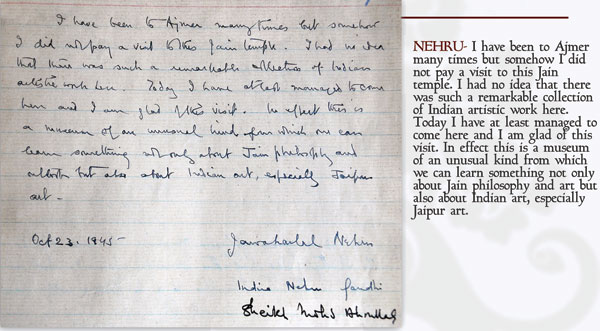 I have been to Ajmer many times but somehow
I did not pay a visit to this Jain temple. I had no idea
that there was such a remarkable collection of Indian
artistic work here. Today I have at last managed to come
here and I am glad of this visit. In effect this is
a museum of an unusual kind from which one can
learn something not only about Jain philosophy and
outlook but also about Indian art, especially Jaipur
art -
Oct 23. 1945 -
Jawaharlal Nehru
Indira Nehru Gandhi
Sheikh Mohd Abdullah
NEHRU- I have been to Ajmer
many times but somehow I did
not pay a visit to this Jain
temple. I had no idea that there
was such a remarkable collection
of Indian artistic work here.
Today I have at least managed to
come here and I am glad of this
visit. In effect this is a museum
of an unusual kind from which
we can learn something not only
about Jain philosophy and art but
also about Indian art, especially
Jaipur art.